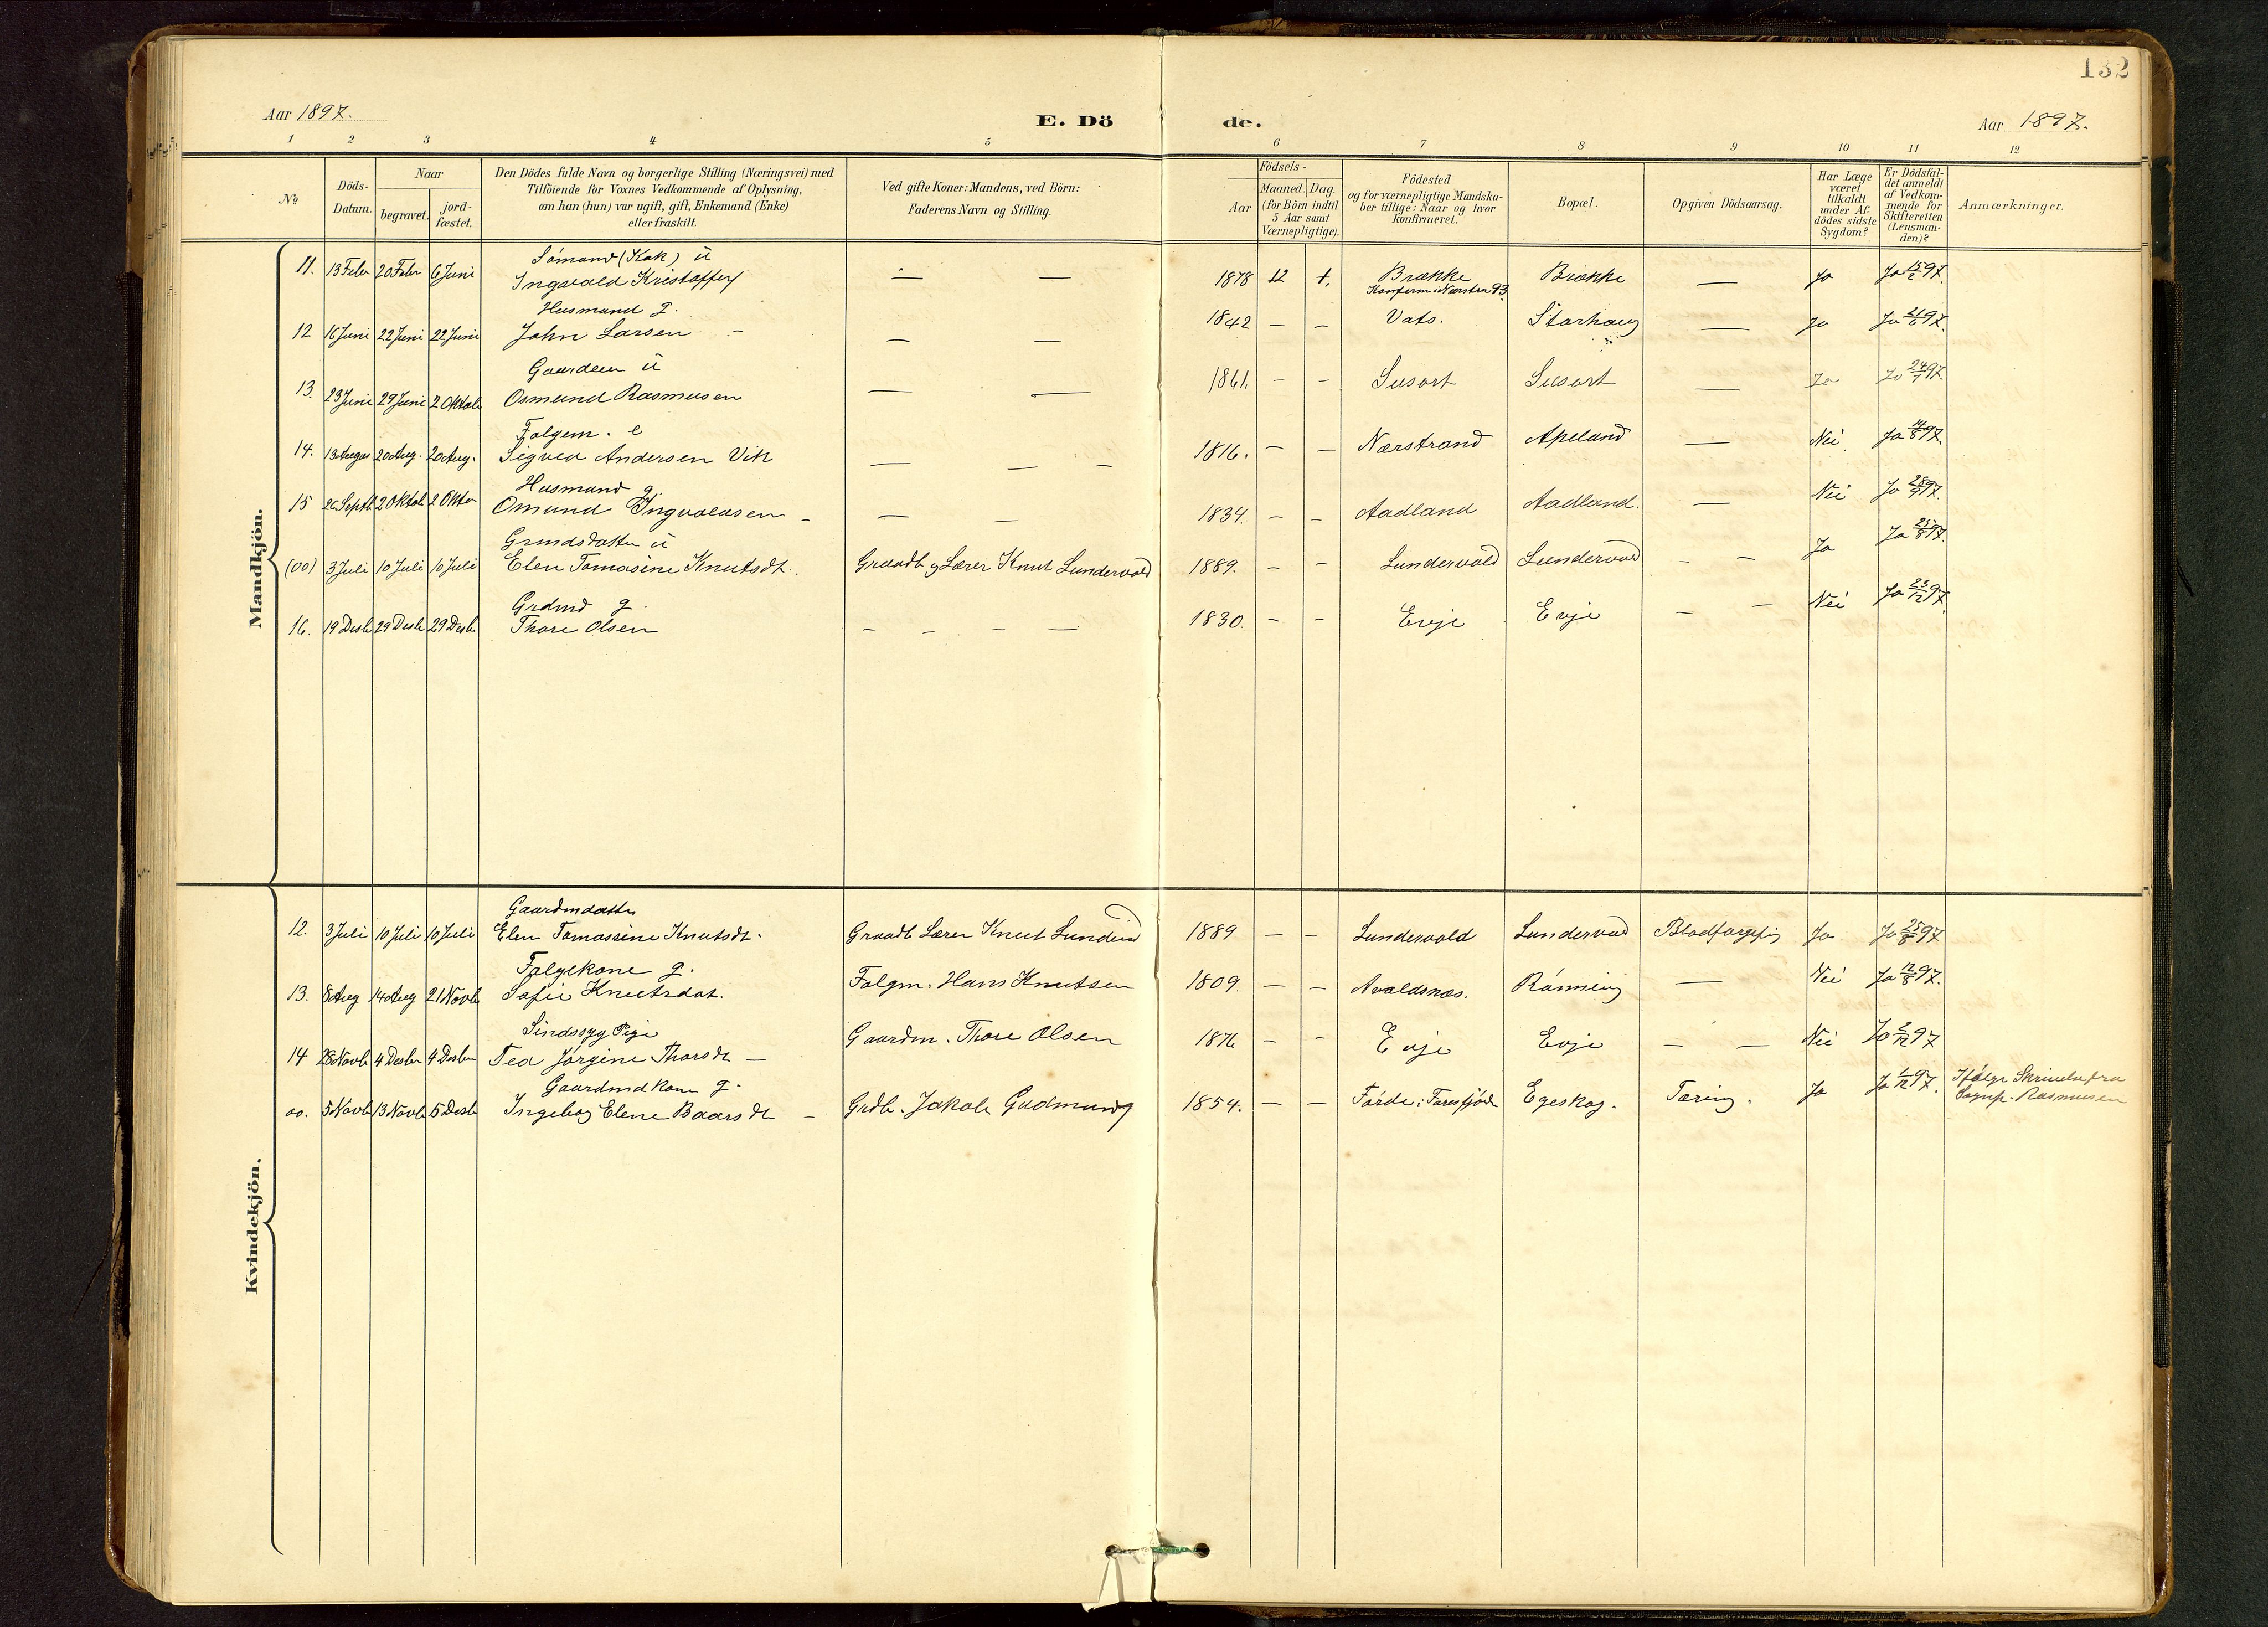 132
Aar 1897.
E. Dö de.
Aar 1897.
1 2 3 4 5 6 7 8 9 10 11 12
№
Döds-Datum.
Naar
begravet.
jord-fæstet.
Den Dödes fulde Navn og borgerlige Stilling (Næringsvei) med
Tilföiende for Voxnes Vedkommende af Oplysning,
om han (hun) var ugift, gift, Enkemand (Enke)
eller fraskilt.
Ved gifte Koner: Mandens, ved Börn:
Faderens Navn og Stilling.
Födsels-
Aar
Maaned. Dag.
(for Börn indtil
5 Aar samt
Værnepligtige).
Födested
og for værnepligtige Mandska-
ber tillige: Naar og hvor
konfirmeret.
Bopæl.
Opgiven Dödsaarsag.
Har Læge
været
tilkaldt
under Af-
dödes sidste
Sygdom?
Er Dödsfal-
det anmeldt
af Vedkom-
mende for
Skifteretten
(Lensman-
den)?
Anmærkninger.
Mandkjön.
Sömand (Kok) ü
11. 13 Febr 20 Febr 6 Juni Ingvald Kristoffer — — 1878 12 Brække Brække — Ja Ja 15/2 97.
Konferm i Nærstra 93
Husmand g.
12 16 Juni 22 Juni 22 Juni John Larsen — — — 1842 — — Vats. Storhaug — Ja Ja 21/6 97.
Gaardem ü
13. 23 Juni 29 Juni 2 Oktob Osmund Rasmusen — — 1861. — — Susort Susort — Ja Ja 24/7 97.
Folgem. e
14. 13 August 20 Aug. 20 Aug. Sigved Andersen Vik — — — 1816. — — Nærstrand Apeland — Nei. Ja 14/8 97.
Husmand g.
15 26 Septb 2 Oktob 2 Oktor Omund Ingvaldsen — — — 1834. — — Aadland Aadland. — Nei Ja 28/9 97.
Grmdsdatter ü
(00) 3 Juli 10 Juli 10 Juli Elen Tomasine Knutsdt. Graadb og Lærer Knut Lundervold 1889. — — Lundervold Lundervold — — Ja Ja 25/8 97.
Grdmd g.
16. 19 Desb 29 Desb 29 Desb Thore Olsen — — — — 1830. — — Evje Evje — — Nei Ja 23/12 97
Kvindekjön.
Gaardmdatter
12. 3 Juli 10 Juli 10 Juli Elen Tomassine Knutsdt. Graadb Lærer Knut 1889 — — Lundervold Lundervold Ja Ja 25/8 97
Folgekone g.
13. 8 Aug 14 Aug 21 Novb Sofie Knutsdat. Folgm. Hans Knutsen 1809. — — Avaldsnæs. Rönning — Nei Ja 12/8 97.
Sindssyg Pige
14 28 Novb 4 Desbr 4 Desbr Tea Jörgine Thorsdt — Gaardm. Thore Olsen 1876 — — Evje Evje — — Nei Ja 2/12 97
Gaardmdkone g.
oo. 5 Novb 13 Novb 5 Desb Ingeborg Elene Baarsdt — Grdb. Jakob Gudmund 1854. — — Förde i Egeskog. Tæring. Ja Ja 1/12 97. Ifölge Skrivelse fra
Sognp. Rasmusen